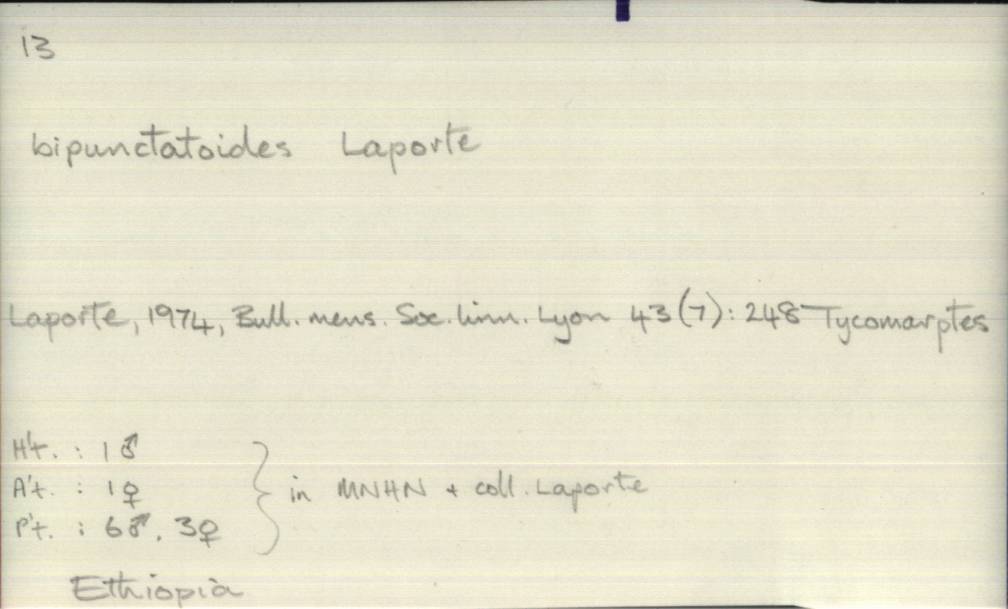 13
bipunctatoides Laporte
Laporte, 1974, Bull. mens. Soc. linn. Lyon 43(7): 248 Tycomarptes
H't. : 1♂
A't. : 1♀
P't. : 6♂, 3♀
} in MNHN + coll. Laporte
Ethiopia